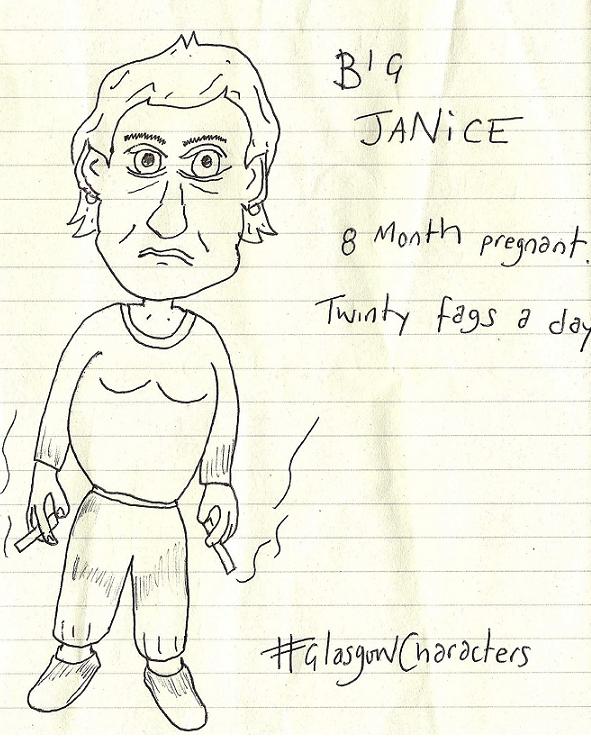 BIG
JANiCE
8 Month pregnant.
Twinty fags a day
#GlasgowCharacters